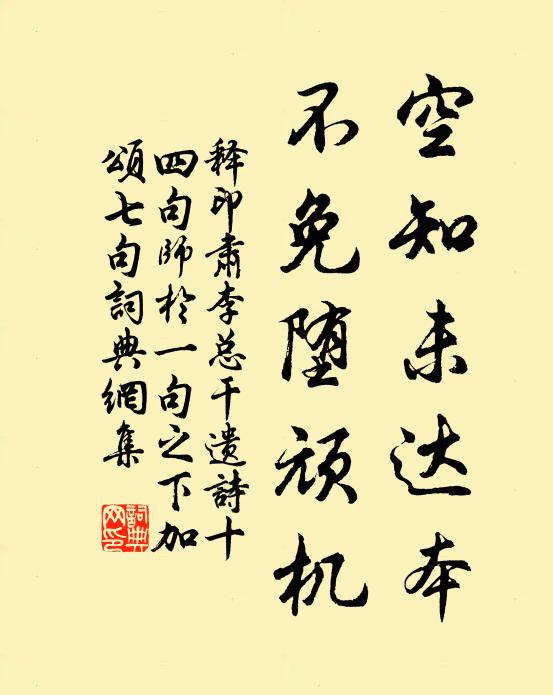 空知未达本
不免堕顽机
释印肃李总干遗詩十
四句師於一句之下加
頌七句詞典網集
詞典
网印